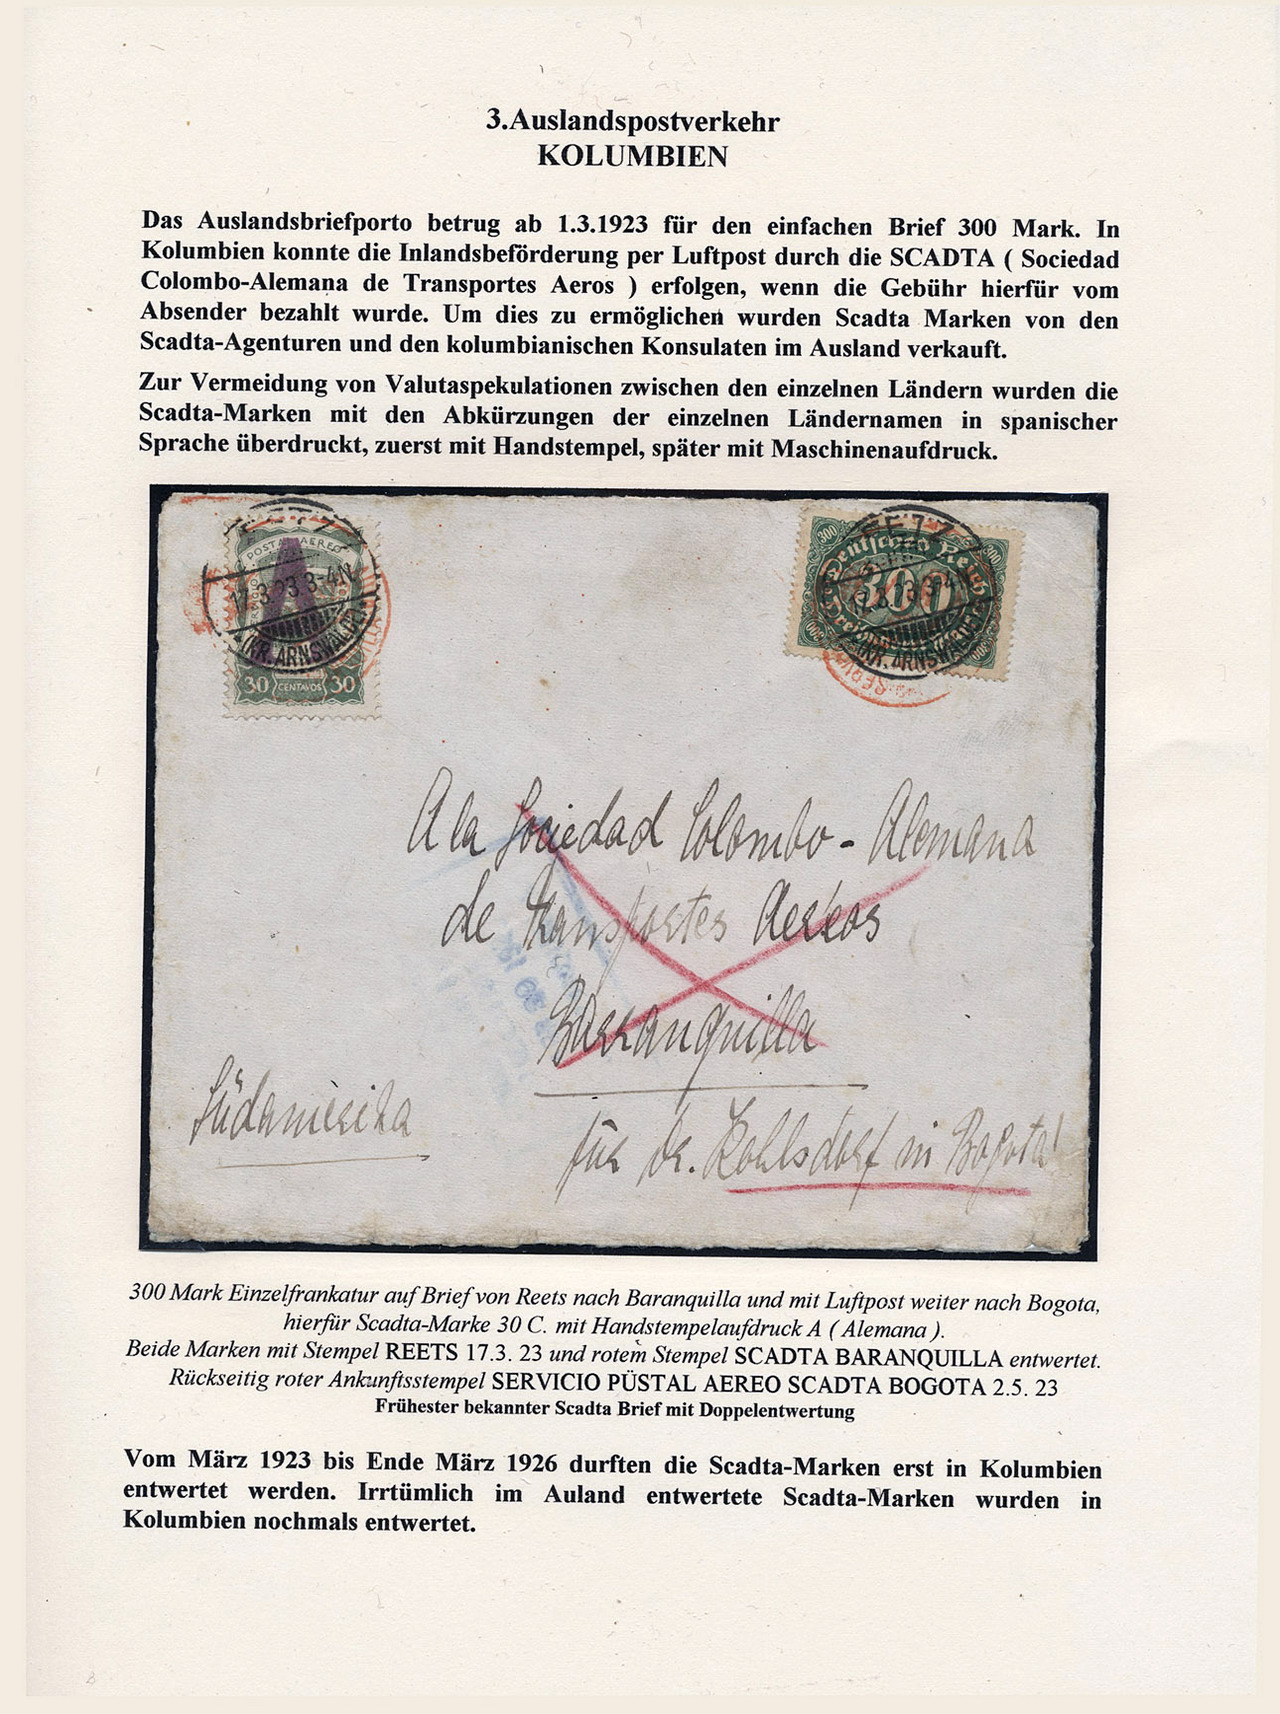 3.Auslandspostverkehr
KOLUMBIEN
Das Auslandsbriefporto betrug ab 1.3.1923 für den einfachen Brief 300 Mark. In
Kolumbien konnte die Inlandsbeförderung per Luftpost durch die SCADTA ( Sociedad
Colombo-Alemana de Transportes Aeros ) erfolgen, wenn die Gebühr hierfür vom
Absender bezahlt wurde. Um dies zu ermöglichen wurden Scadta Marken von den
Scadta-Agenturen und den kolumbianischen Konsulaten im Ausland verkauft.
Zur Vermeidung von Valutaspekulationen zwischen den einzelnen Ländern wurden die
Scadta-Marken mit den Abkürzungen der einzelnen Ländernamen in spanischer
Sprache überdruckt, zuerst mit Handstempel, später mit Maschinenaufdruck.
POSTAL AEREO
A
17.3.23.3-4N
(KR. ARNSWALDE)
30 CENTAVOS 30
300 300
Deutsches Reich
300
17.3.23.3-4N
(KR. ARNSWALDE)
300 300
A la Sociedad Colombo-Alemana
de Transportes Aereos
Barranquilla
Südamerika
für Dr. Kohlsdorf in Bogota!
300 Mark Einzelfrankatur auf Brief von Reets nach Baranquilla und mit Luftpost weiter nach Bogota,
hierfür Scadta-Marke 30 C. mit Handstempelaufdruck A ( Alemana ).
Beide Marken mit Stempel REETS 17.3. 23 und rotem Stempel SCADTA BARANQUILLA entwertet.
Rückseitig roter Ankunftsstempel SERVICIO PÜSTAL AEREO SCADTA BOGOTA 2.5. 23
Frühester bekannter Scadta Brief mit Doppelentwertung
Vom März 1923 bis Ende März 1926 durften die Scadta-Marken erst in Kolumbien
entwertet werden. Irrtümlich im Auland entwertete Scadta-Marken wurden in
Kolumbien nochmals entwertet.